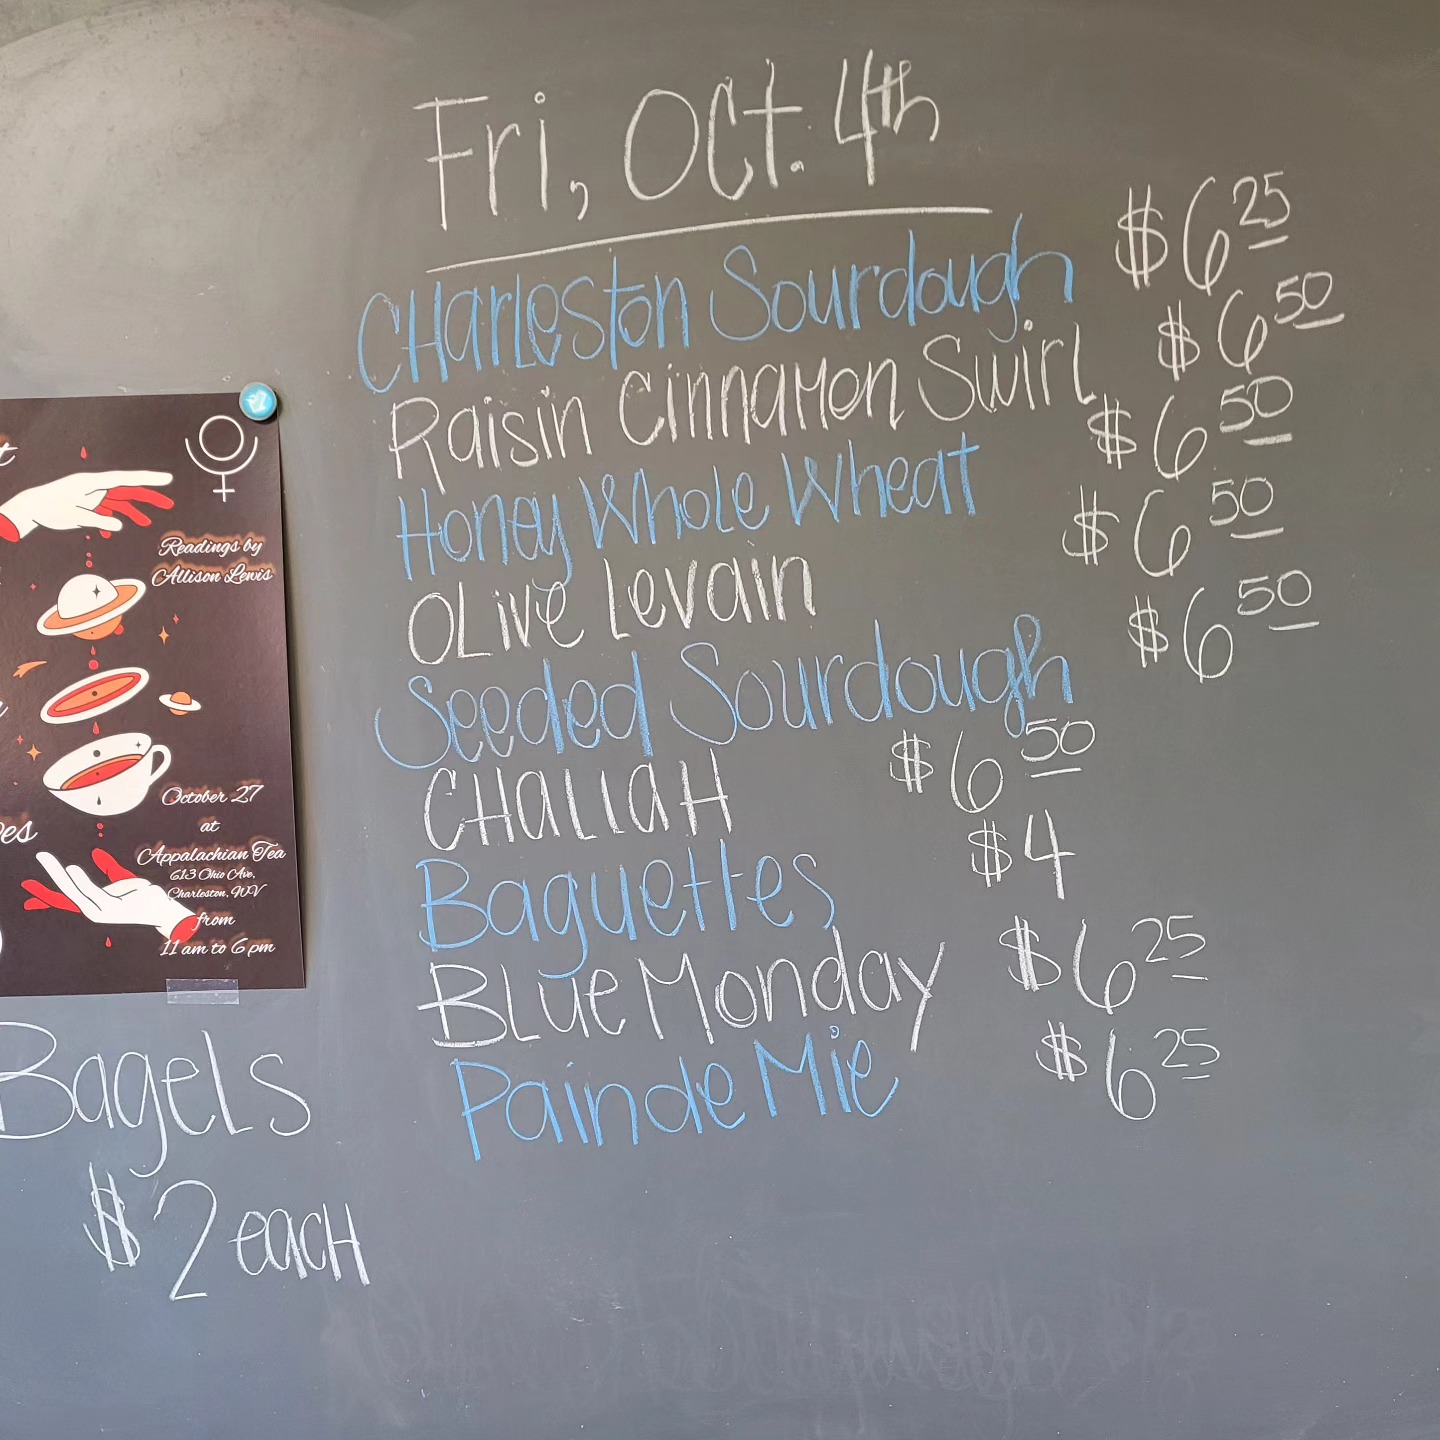 Fri, Oct. 4th
CHarleston Sourdough $6 25
Raisin Cinnamon Swirl $6 50
Honey Whole Wheat $6 50
OLive Levain $6 50
Seeded Sourdough $6 50
CHallaH $6 50
Baguettes $4
BLue Monday $6 25
Pain de Mie $6 25
Readings by
Allison Lewis
October 27
at
Appalachian Tea
613 Ohio Ave.
Charleston, WV
from
11 am to 6 pm
BageLs
$2 eacH